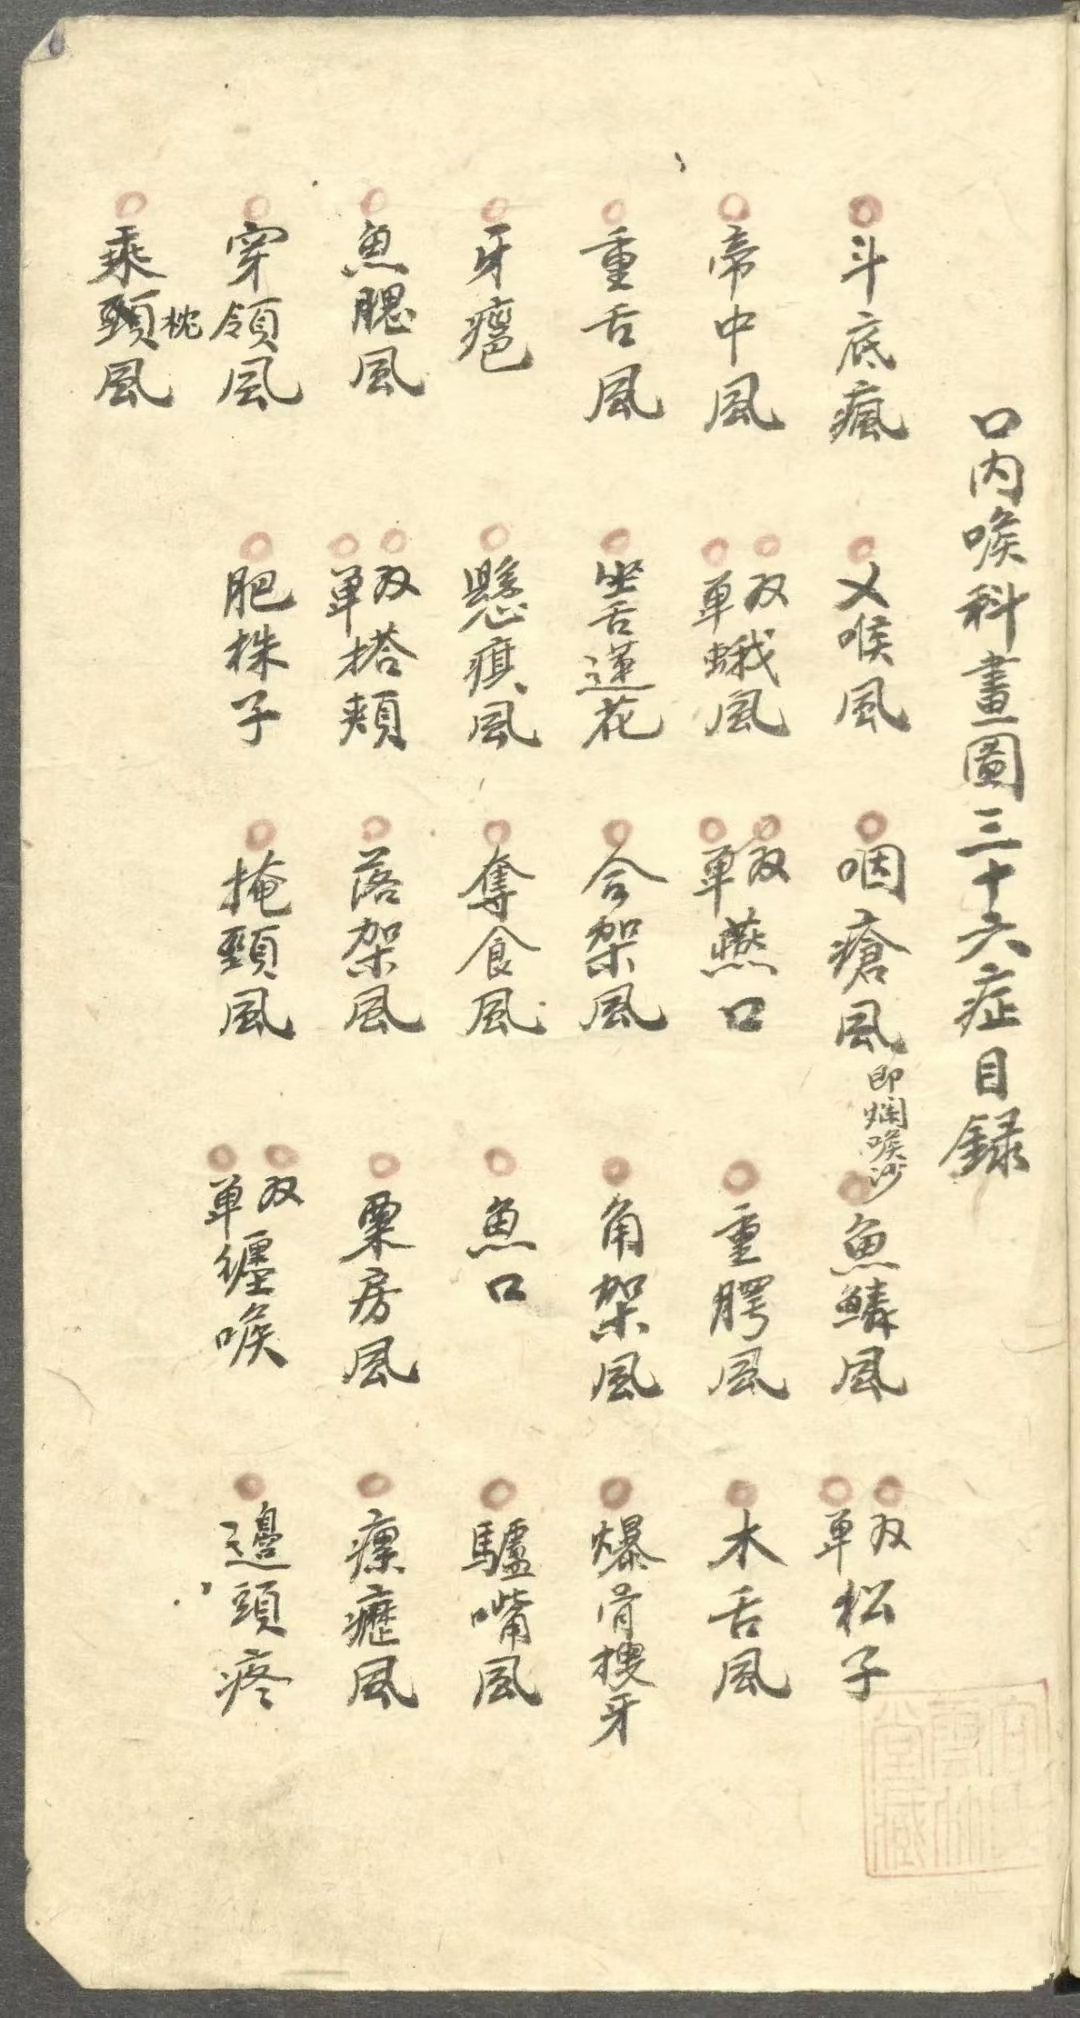 口内喉科畫圖三十六症目録
斗底瘋
乂喉風
咽瘡風 即爛喉沙
魚鱗風
双單松子
帝中風
双單蛾風
双單燕口
重腭風
木舌風
重舌風
坐舌蓮花
合架風
角架風
爆骨搜牙
牙㿈
懸疔風
奪食風
魚口
驢嘴風
魚腮風
双單搭頰
落架風
粟房風
瘰癧風
穿領風
肥株子
掩頸風
双單纏喉
邊頭疼
乘頸風
枕
堂藏